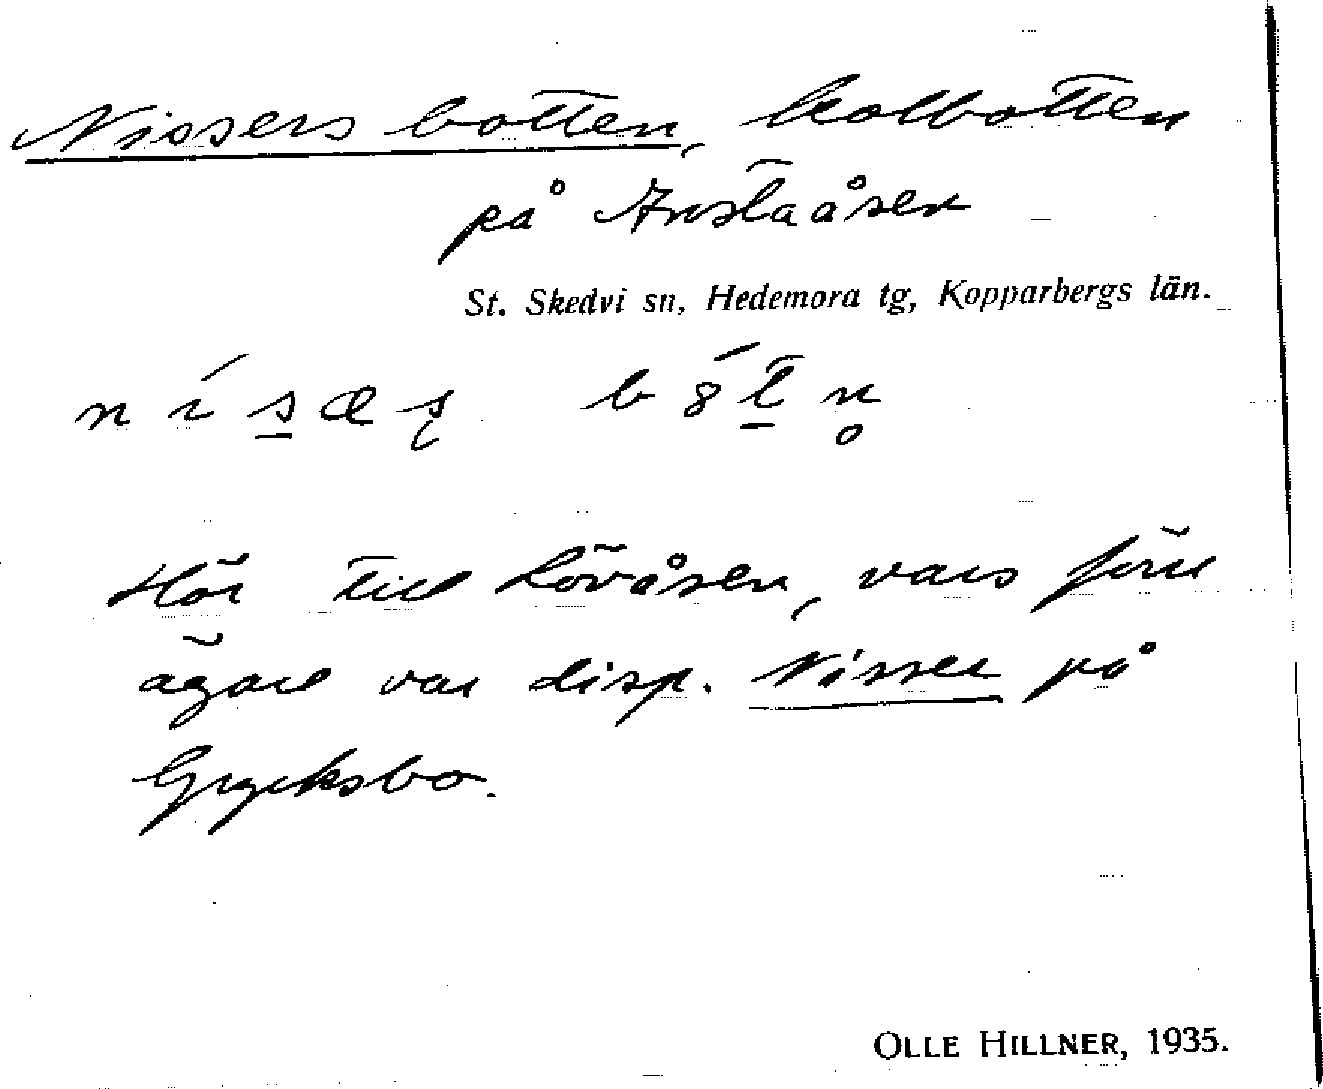 Nissers botten, kolbotten
på Anstaåsen
St. Skedvi sn, Hedemora tg, Kopparbergs län.
Hör till Lövåsen, vars förre
ägare var disp. Nisser på
Grycksbo.
OLLE HILLNER, 1935.